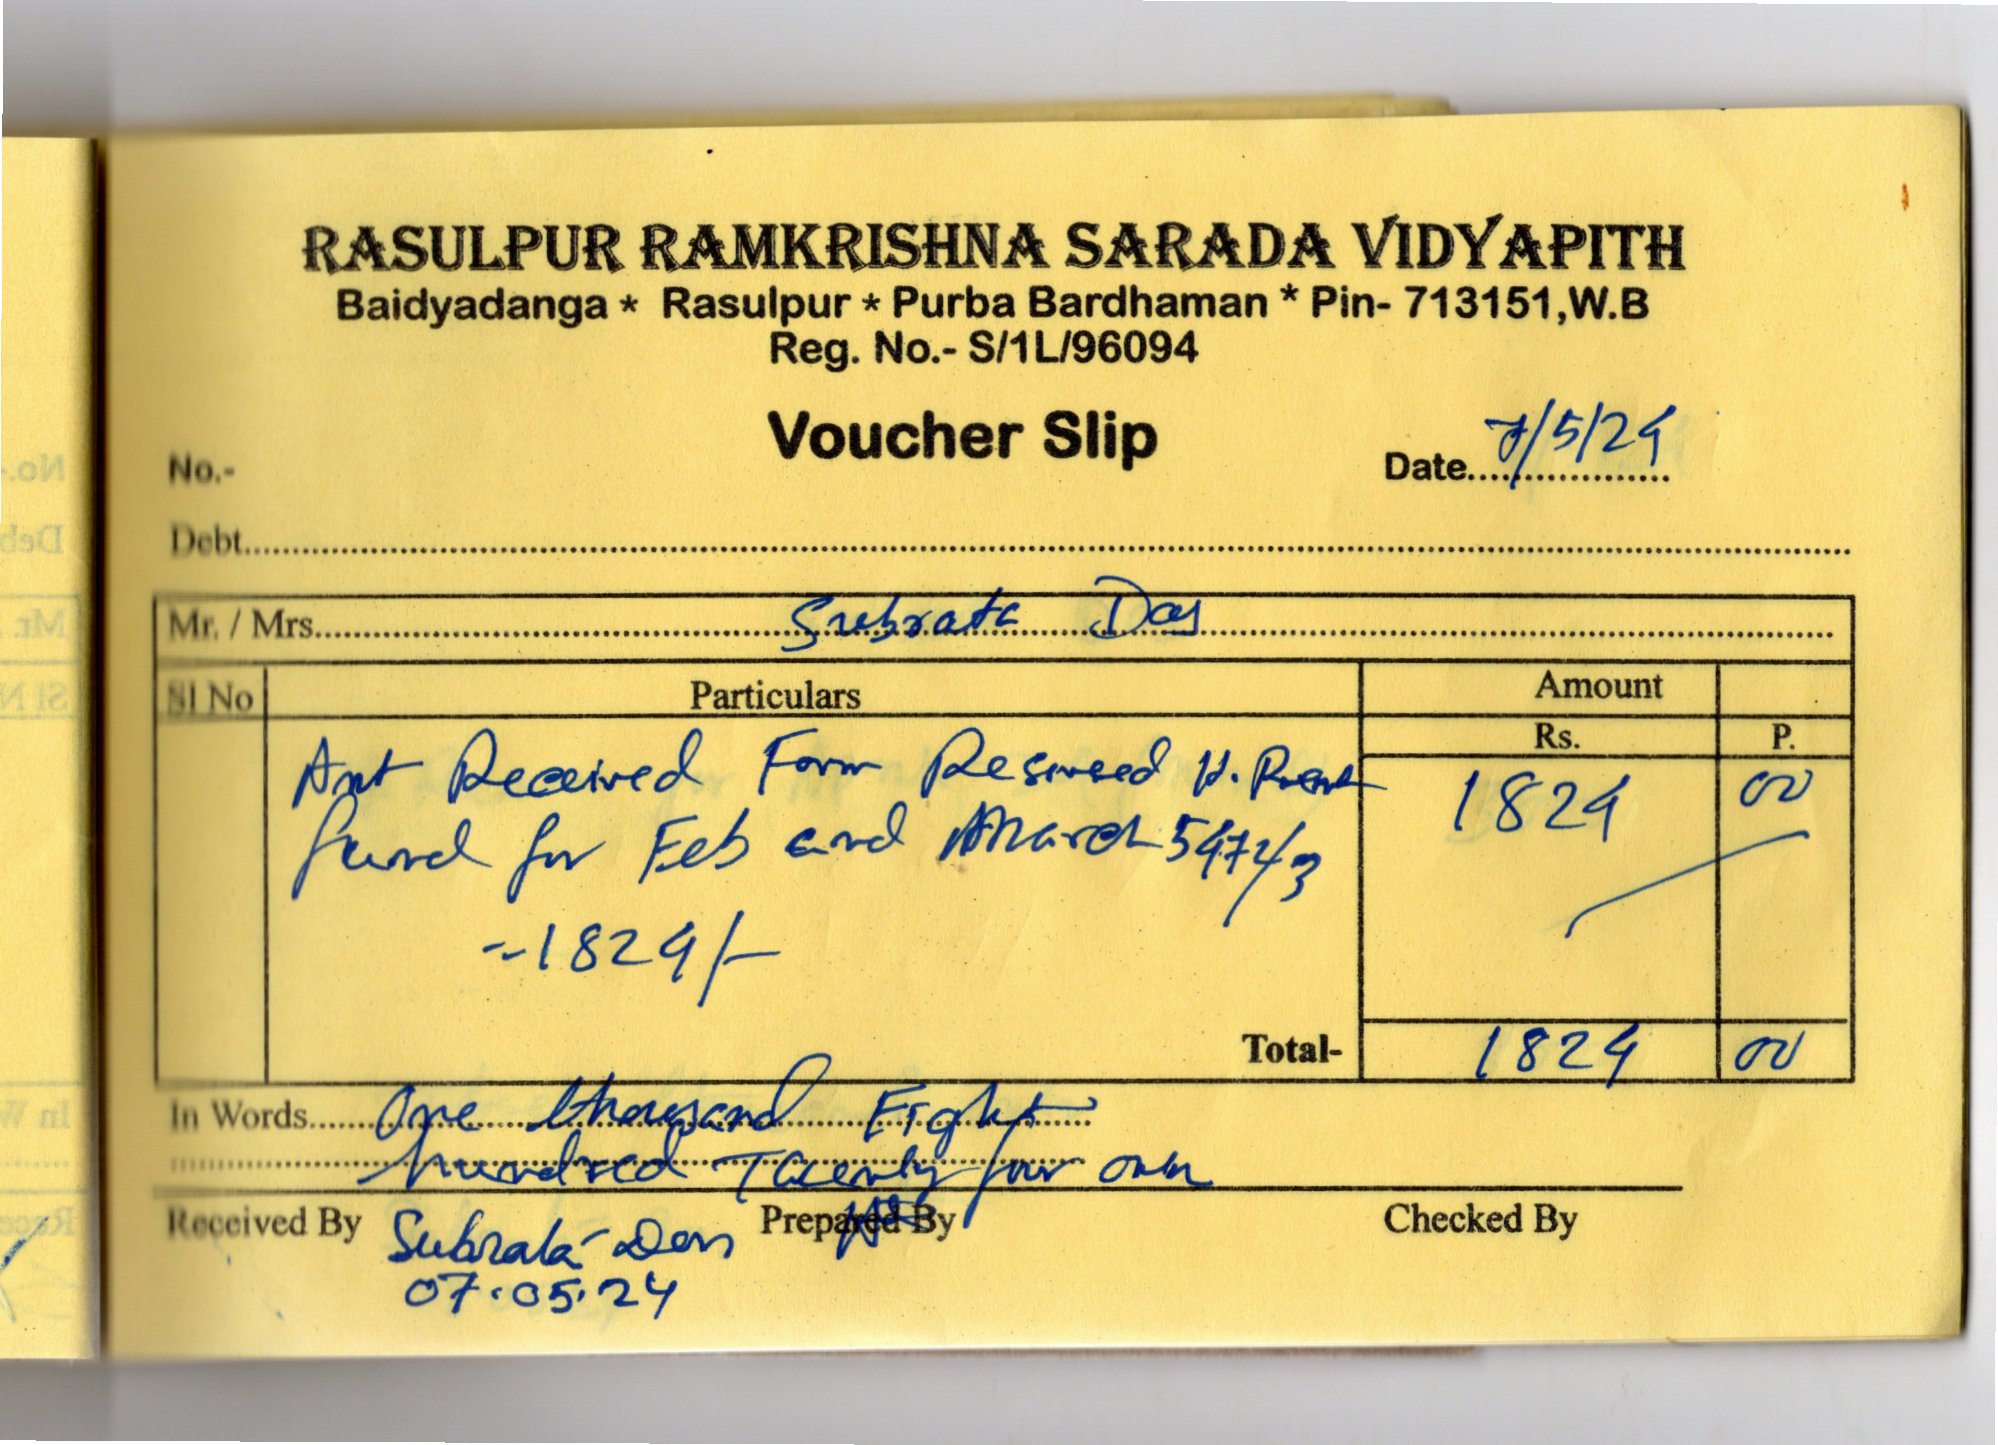 RASULPUR RAMKRISHNA SARADA VIDYAPITH
Baidyadanga * Rasulpur * Purba Bardhaman * Pin- 713151,W.B
Reg. No.- S/1L/96094
Voucher Slip
No.-
Date 7/5/24
Debt
Mr. / Mrs. Subrata Das
Sl No Particulars Amount
Rs. P.
Amt Received Form H.
1824 00
fund for Feb and March 5472/3
~1824/-
Total- 1824 00
In Words One thousand Eight
hundred Twenty four
Received By Subrata Das Prepared By Checked By
07.05.24